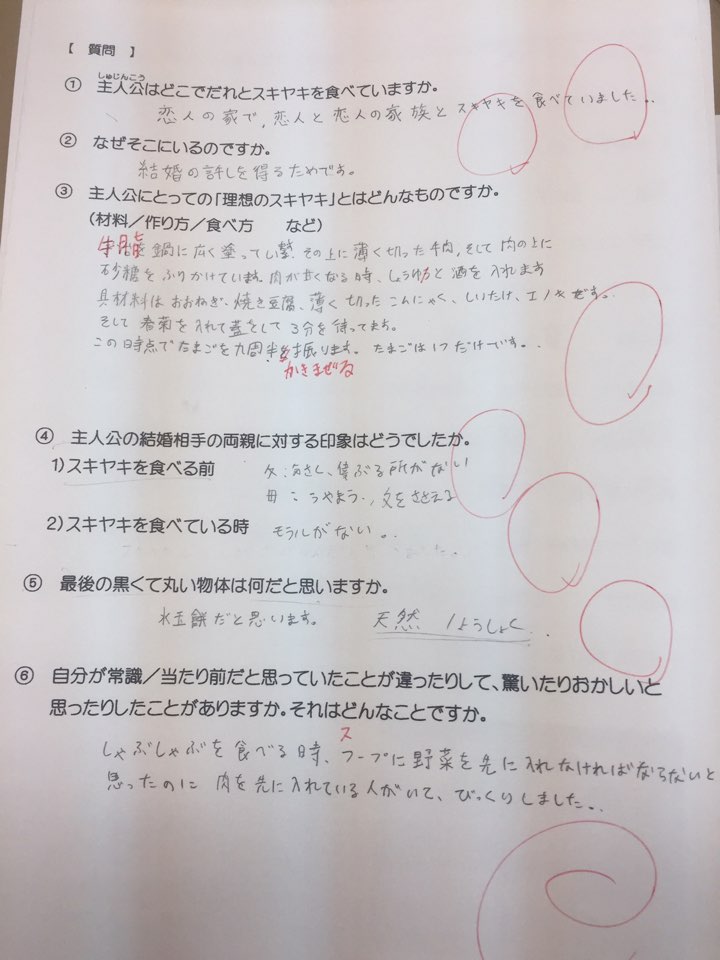 【 質問 】
① 主人公はどこでだれとスキヤキを食べていますか。
しゅじんこう
恋人の家で,恋人と恋人の家族とスキヤキを食べていました..
② なぜそこにいるのですか。
結婚の許しを得るためです。
③ 主人公にとっての「理想のスキヤキ」とはどんなものですか。
(材料/作り方/食べ方 など)
鍋に広く塗って その上に薄く切った牛肉,そして肉の上に
砂糖をふりかけています。肉が甘くなる時、しょうゆと酒を入れます
具材料はおおねぎ、焼き豆腐、薄く切ったこんにゃく、しいたけ、エノキです。.
そして春菊を入れて蓋をして3分を待ってます。
この時点でたまごを九周半 振ります。たまごは1つだけです。.
かきまぜる
④ 主人公の結婚相手の両親に対する印象はどうでしたか。
1)スキヤキを食べる前
父:やさし、偉ぶる所がない
母:うやまう.,父をささえる
2)スキヤキを食べている時
モラルがない。.
⑤ 最後の黒くて丸い物体は何だと思いますか。
水玉餅だと思います。
天然 ようしょく
⑥ 自分が常識/当たり前だと思っていたことが違ったりして、驚いたりおかしいと
思ったりしたことがありますか。それはどんなことですか。
ス
しゃぶしゃぶを食べる時、フープに野菜を先に入れなければならないと
思ったのに 肉を先に入れている人がいて、びっくりしました..